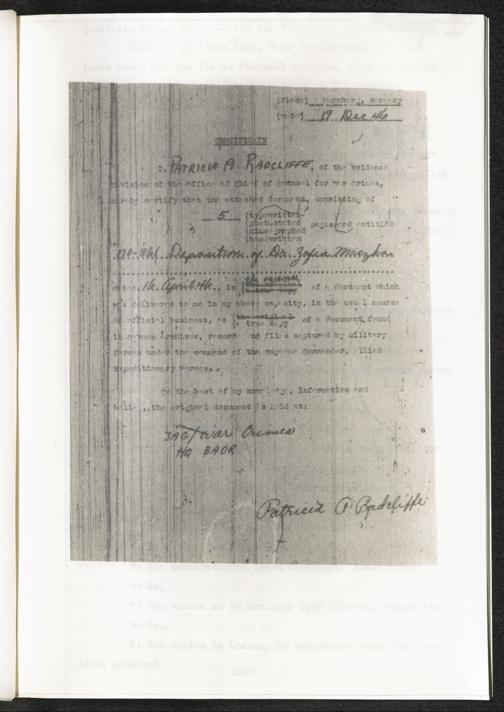 (Place) Nurnberg, Germany
(Date) 19 Dec 46
CERTIFICATE
I, PATRICIA A. RADCLIFFE, of the Evidence
Division of the Office of Chief of Counsel for War Crimes,
hereby certify that the attached document, consisting of
5 (typewritten
(photostated pages and entitled
(mimeographed
(handwritten
Deposition of Dr. Zofia Maczka
dated 16 April 46, is (the original
(a true copy of a document which
was delivered to me in my above capacity, in the usual course
of official business, as (the original
(a true copy of a document found
in German archives, records and files captured by military
forces under the command of the Supreme Commander, Allied
Expeditionary Forces.
To the best of my knowledge, information and
belief, the original document is held at:
JAG War Crimes
HQ BAOR
Patricia A Radcliffe